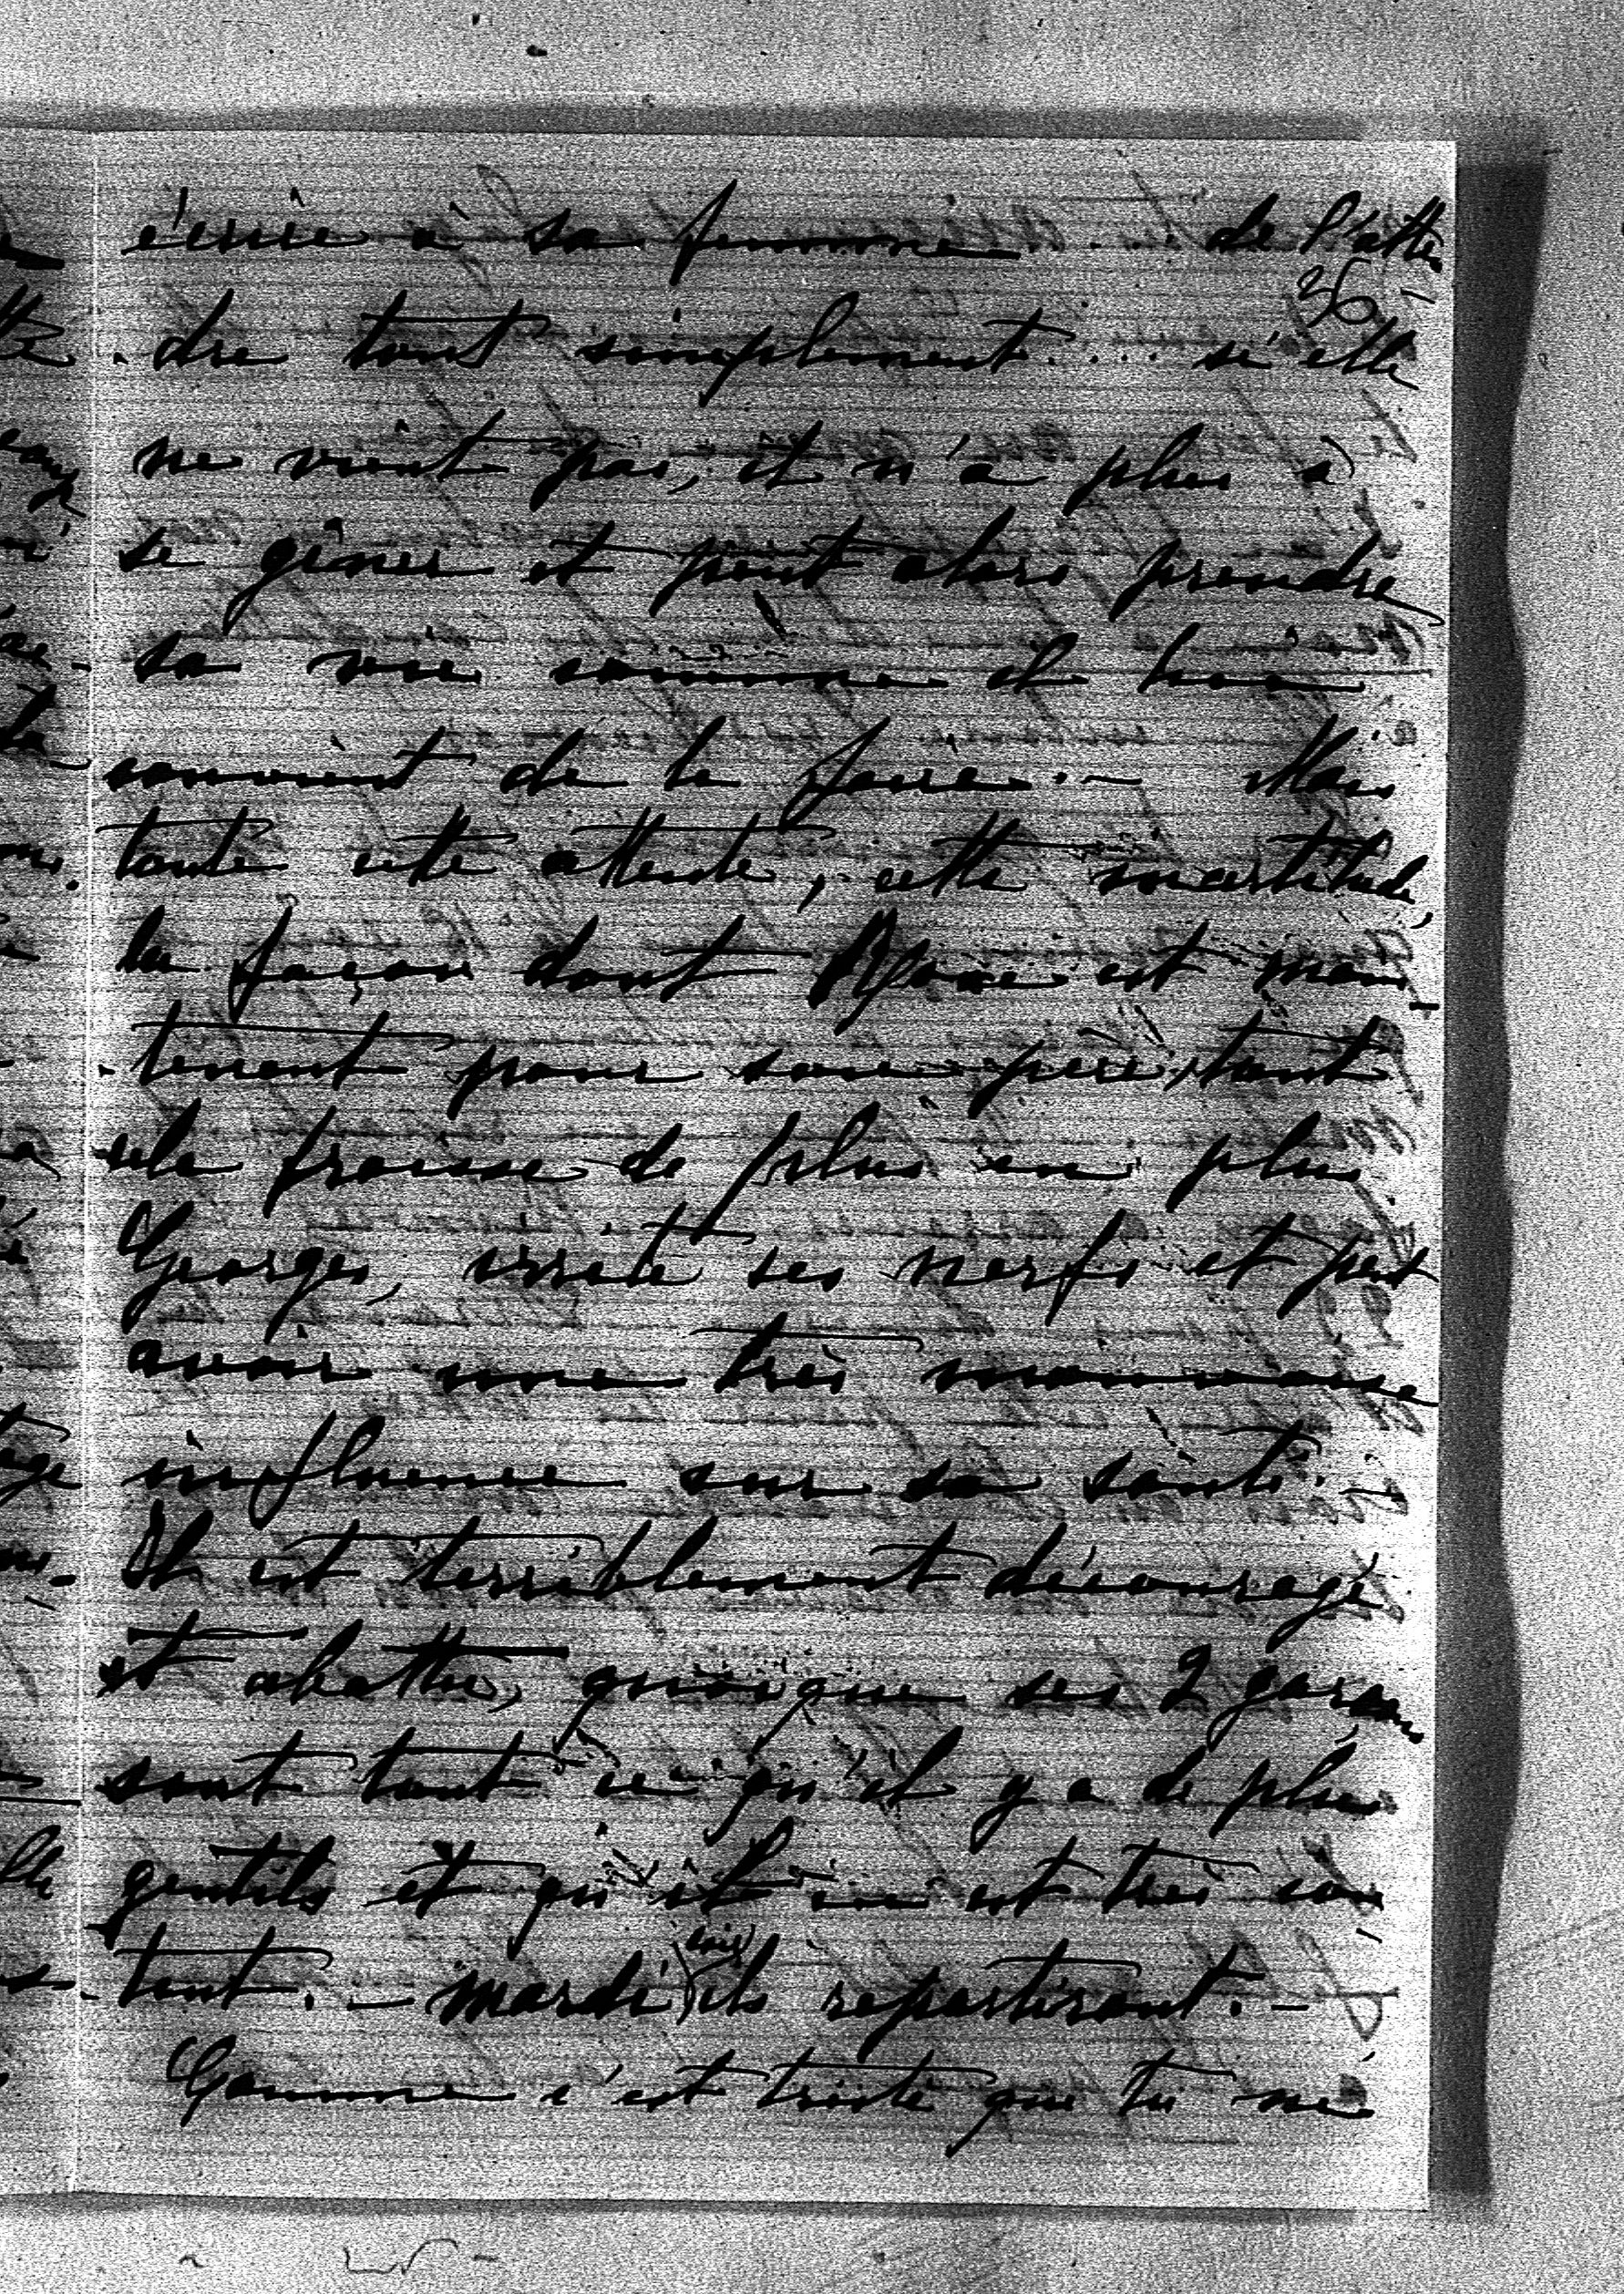 écrire à sa femme.... de l'atten
36
-dre tout simplement.... si elle
ne vient pas, il n'a plus à
se gêner et peut alors prendre
sa vie comme il lui
convient de le faire. — Mais
toute cette attente, cette incertitude,
la façon dont est main-
-tenant pour son père, tout
cela froisse de plus en plus
Georges, irrite ses nerfs et peut
avoir une très mauvaise
influence sur sa santé. —
Il est terriblement découragé
et abattu, quoique ses 2 garçons
sont tout ce qu'il y a de plus
gentils et qu'il en est très con
-tent. — Mardi ils repartiront. —
Comme c'est triste que tu ne